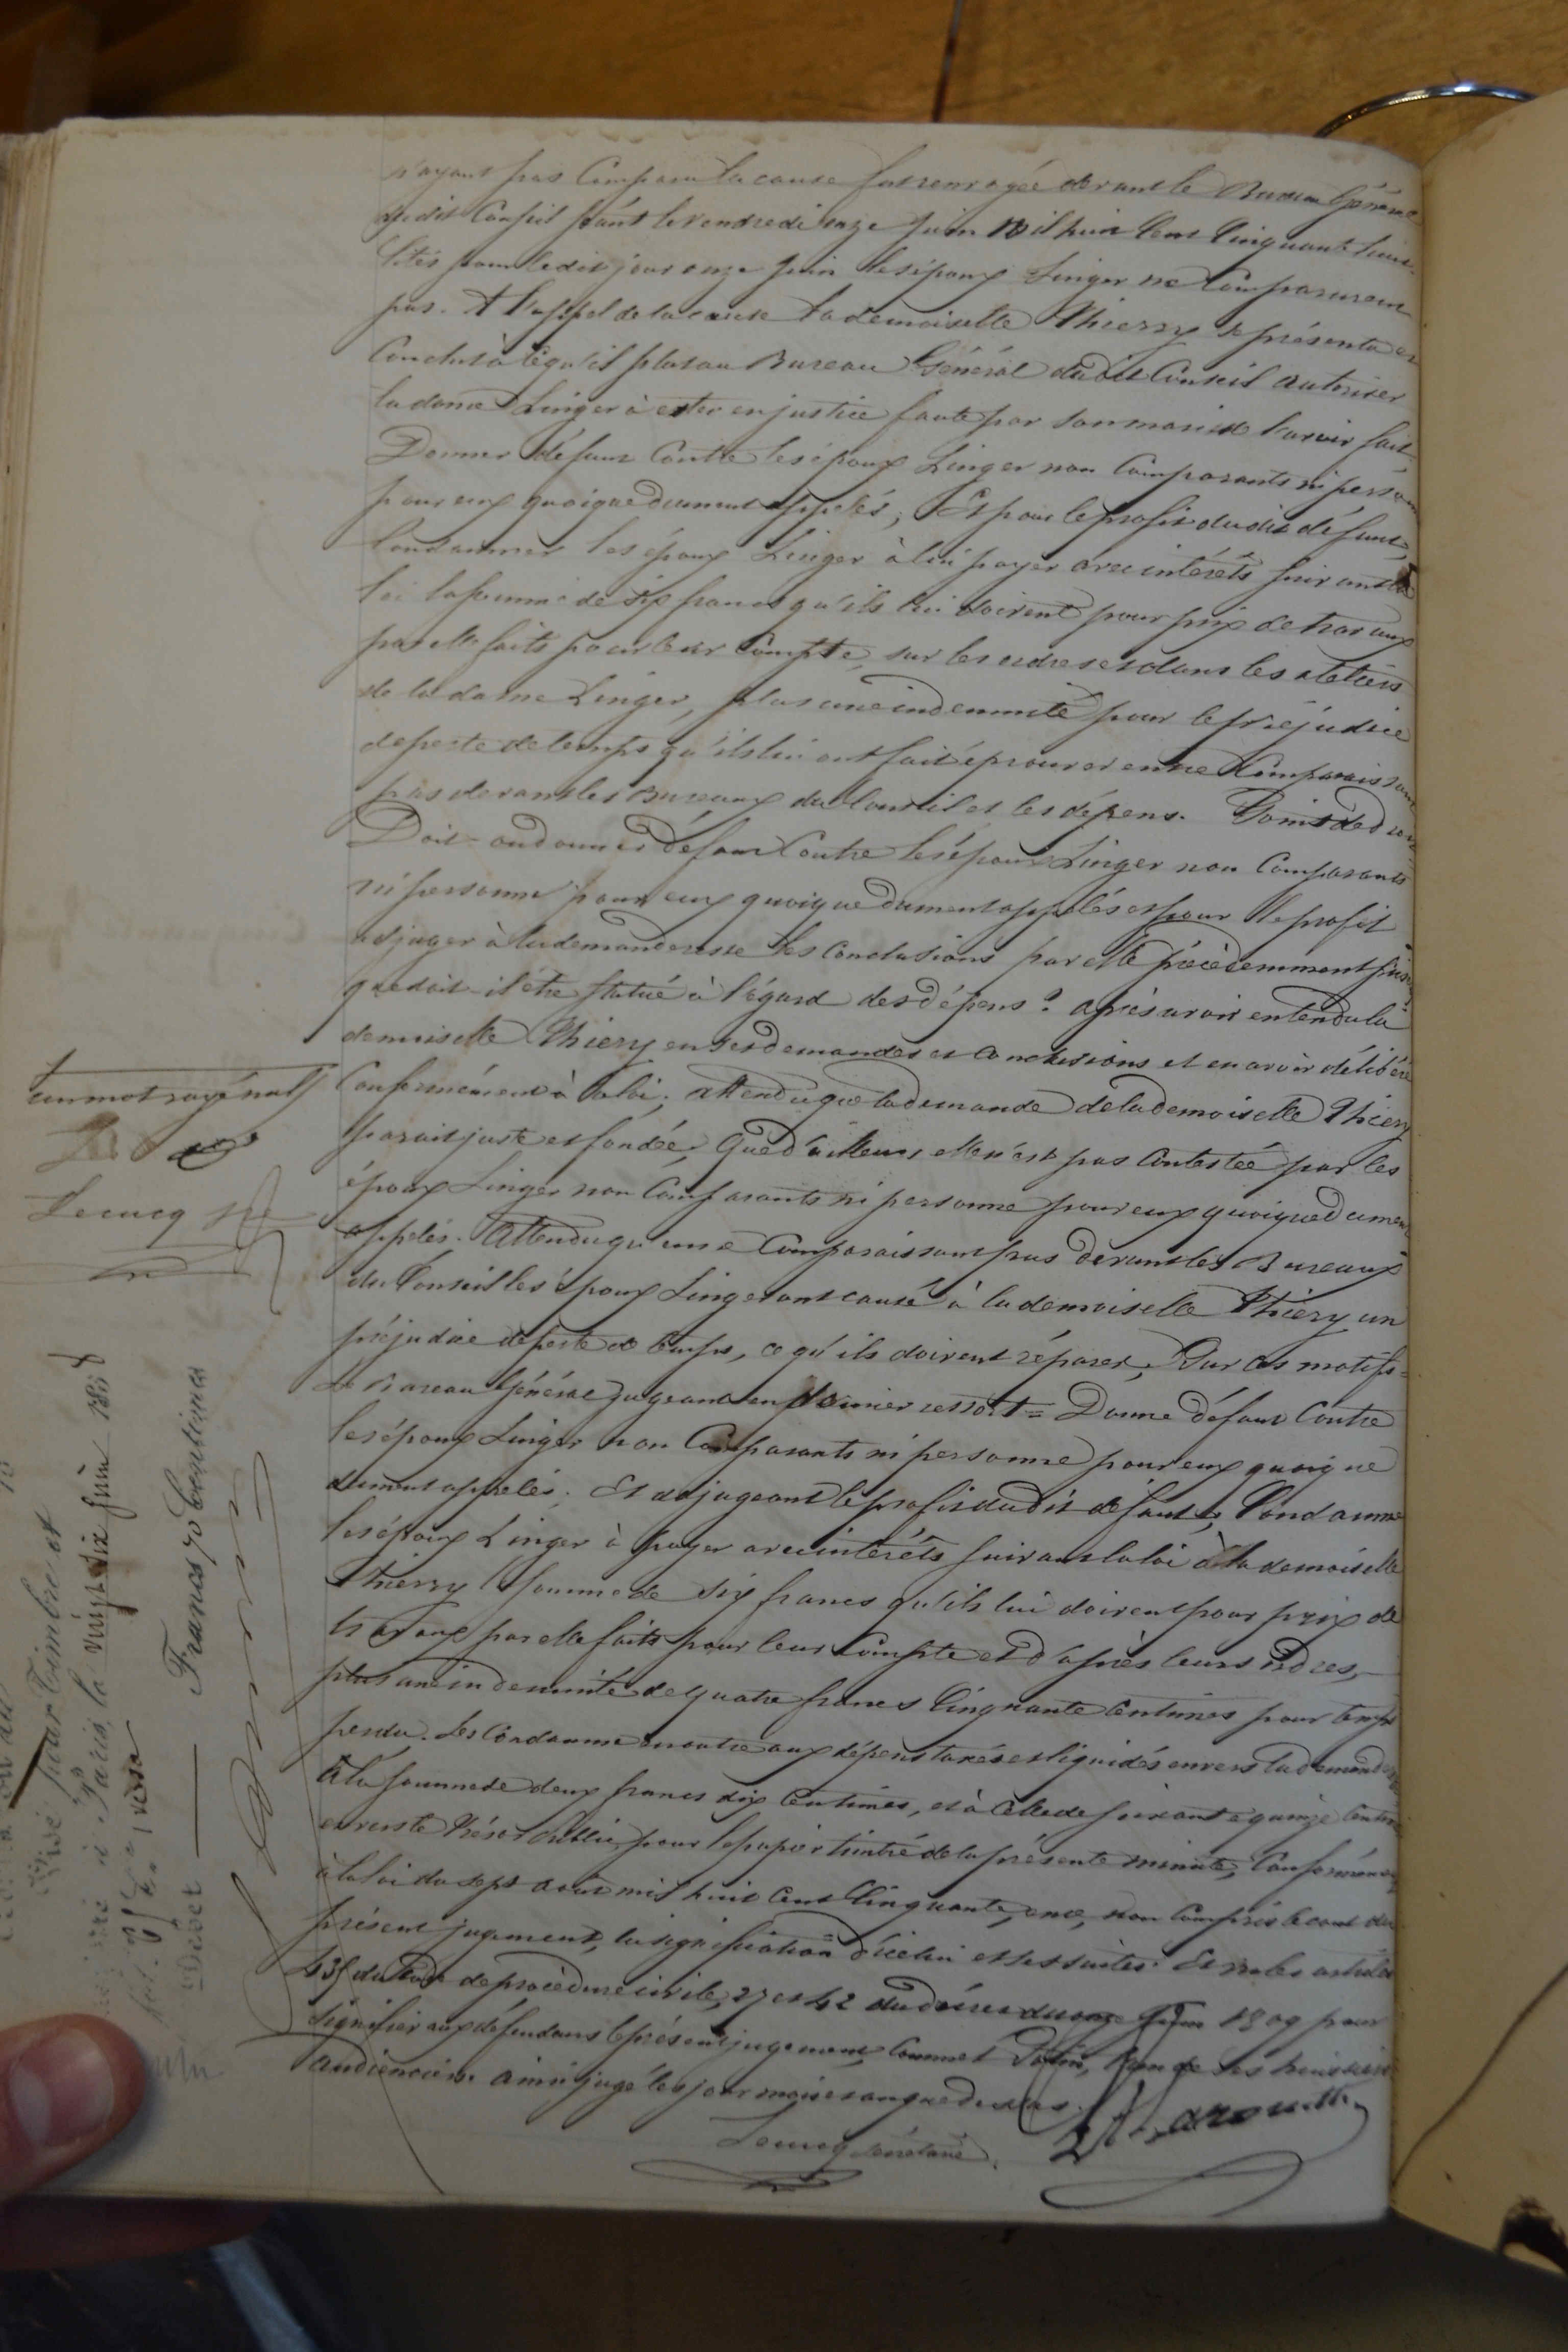 n'ayant pas Comparu la cause fut renvoyée devant le Bureau Général
dudit Conseil séant le vendredi onze Juin Mil huit Cent Cinquante huit.
Cités pour ledit jour onze Juin les époux Linger ne Comparurent
pas. A l'appel de la cause la demoiselle Thierry se présenta et
Conclut à ce qu'il plut au Bureau Général dudit Conseil autoriser
la dame Linger à ester en justice faute par son mari de l'avoir fait
Donner défaut Contre les époux Linger non Comparants ni personne
pour eux quoique dument appelés; Et pour le profit dudit défaut,
Condamner les époux Linger à lui payer avec intérêts suivant la
loi la somme de six francs qu'ils lui doivent pour prix de travaux
par elle faits pour leur Compte, sur les ordres et dans les ateliers
de la dame Linger, plus une indemnité pour le préjudice
de perte de temps qu'ils lui ont fait éprouver en ne Comparaissant
pas devant les Bureaux du Conseil et les dépens. Point de droit
Doit-on donner défaut Contre les époux Linger non Comparants
ni personne pour eux quoique dument appelés et pour le profit
adjuger à la demanderesse les Conclusions par elle précédemment prises
que doit-il être statué à l'égard des dépens? après avoir entendu la
demoiselle Thiery en ses demandes et Conclusions et en avoir délibéré
Conformément à la loi; attendu que la demande de la demoiselle Thiery
parait juste et fondée; Que d'ailleurs elle n'est pas Contestée par les
époux Linger non Comparants ni personne pour eux quoique dument
appelés. Attendu qu'en ne Comparaissant pas devant les Bureaux
du Conseil les époux Linger ont causé à la demoiselle Thiery un
préjudice de perte de temps, ce qu'ils doivent réparer, Par ces motifs =
Le Bureau Général jugeant en dernier ressort = Donne défaut Contre
les époux Linger non Comparants ni personne pour eux quoique
dument appelés; Et adjugeant le profit dudit défaut, Condamne
les époux Linger à payer avec intérêts suivant la loi à la demoiselle
Thierry somme de Six francs qu'ils lui doivent pour prix de
travaux par elle faits pour leur Compte et d'après leurs ordres,
plus une indemnité de quatre francs Cinquante Centimes pour temps
perdu. Les Condamne en outre aux dépens taxés et liquidés envers la demanderesse
à la somme de deux francs dix Centimes, et à Celle de soixante quinze Centimes
envers le Trésor Public, pour le papier timbré de la présente minute, Conformément
à la loi du sept août mil huit Cent Cinquante, ence, non Compris le cout du
présent jugement, la signification d'icelui et ses suites. Et vu les articles
435 du Code de procédure civile, 27 et 42 du décret du onze Juin 1809 pour
signifier aux défendeurs le présent jugement, Commet l'un de ses huissiers
audienciers. Ainsi jugé les jour mois et an que dessus.
Lecucq Secrétaire.
un mot rayé nul
Lecucq
pour Timbre et
à Paris, le vingt six Juin 1858
Débet — Francs 70 Centimes